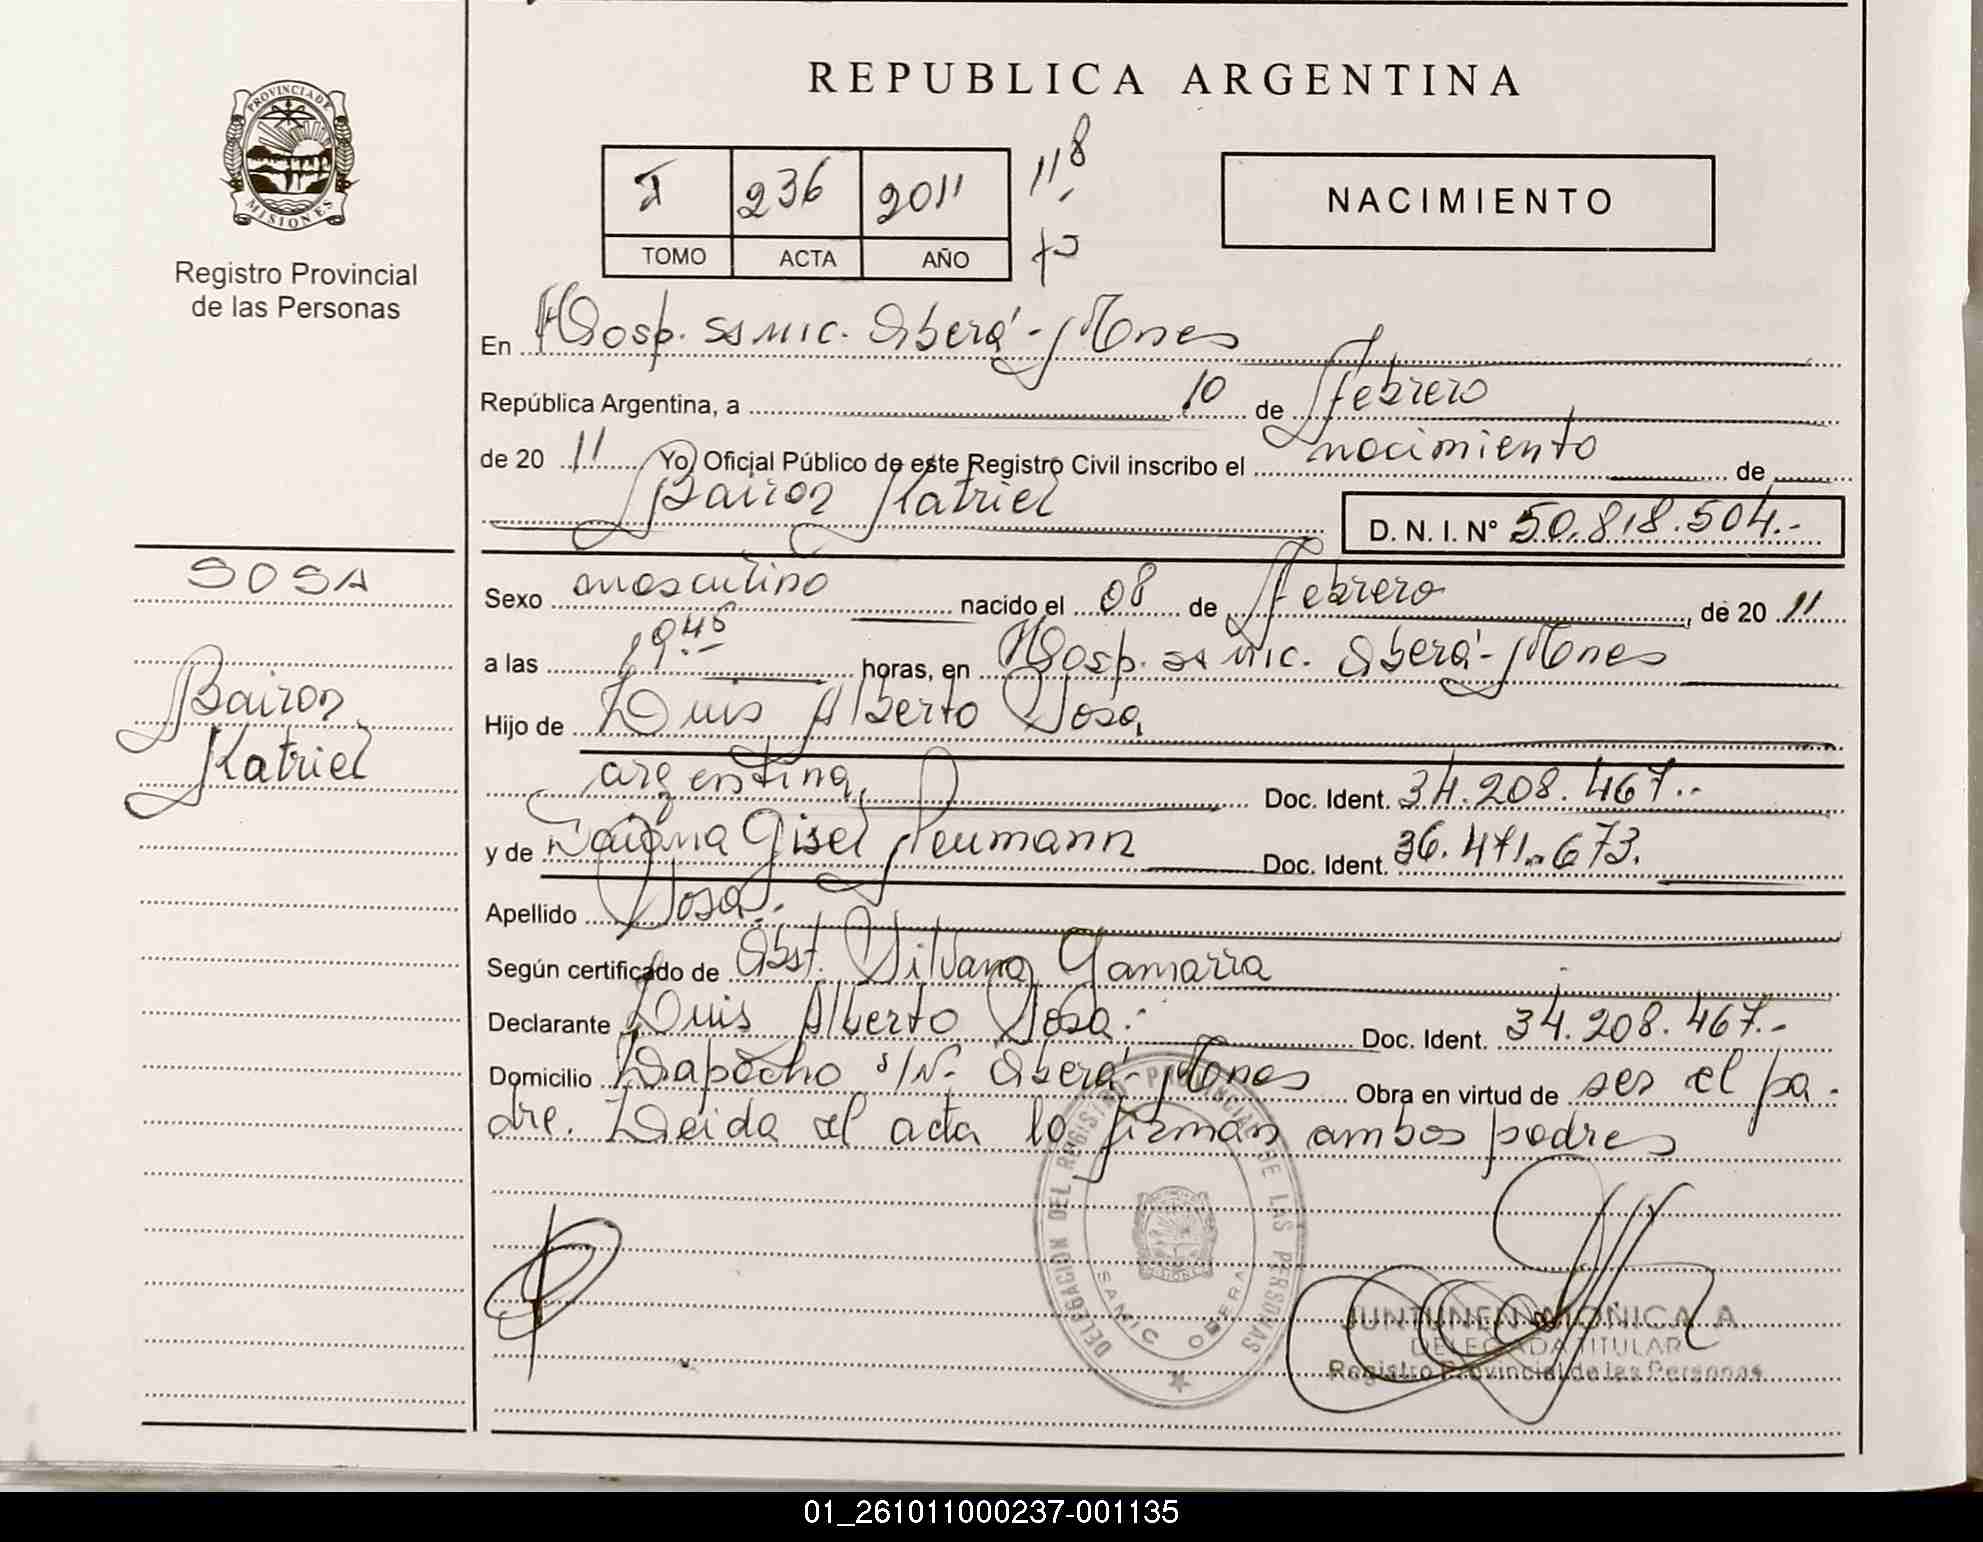 PROVINCIA DE
MISIONES
Registro Provincial
de las Personas
REPUBLICA ARGENTINA
I 236 2011 118
TOMO ACTA AÑO
NACIMIENTO
En Hosp. SAMIC. Oberá - Mones
República Argentina, a 10 de Febrero
de 20 11 Yo, Oficial Público de este Registro Civil inscribo el nacimiento de
Bairon Katriel D. N. I. Nº 50.818.504.-
SOSA
Bairon
Katriel
Sexo masculino nacido el 08 de Febrero, de 20 11
a las 19.45 horas, en Hosp. SAMIC. Oberá - Mones
Hijo de Luis Alberto Sosa
argentina, Doc. Ident. 34.208.467.-
y de Daiana Gisel Neumann Doc. Ident. 36.471.673.
Apellido Sosa.-
Según certificado de Obst. Silvana Gamarra
Declarante Luis Alberto Sosa.- Doc. Ident. 34.208.467.-
Domicilio Lapacho s/Nº Oberá - Mones Obra en virtud de ser el pa-
dre. Leida el acta la firman ambos padres
DELEGACION DEL REGISTRO PROVINCIAL DE LAS PERSONAS
SAMIC OBERA
JUNTUNEN MONICA A
DELEGADA TITULAR
Registro Provincial de las Personas
01_261011000237-001135